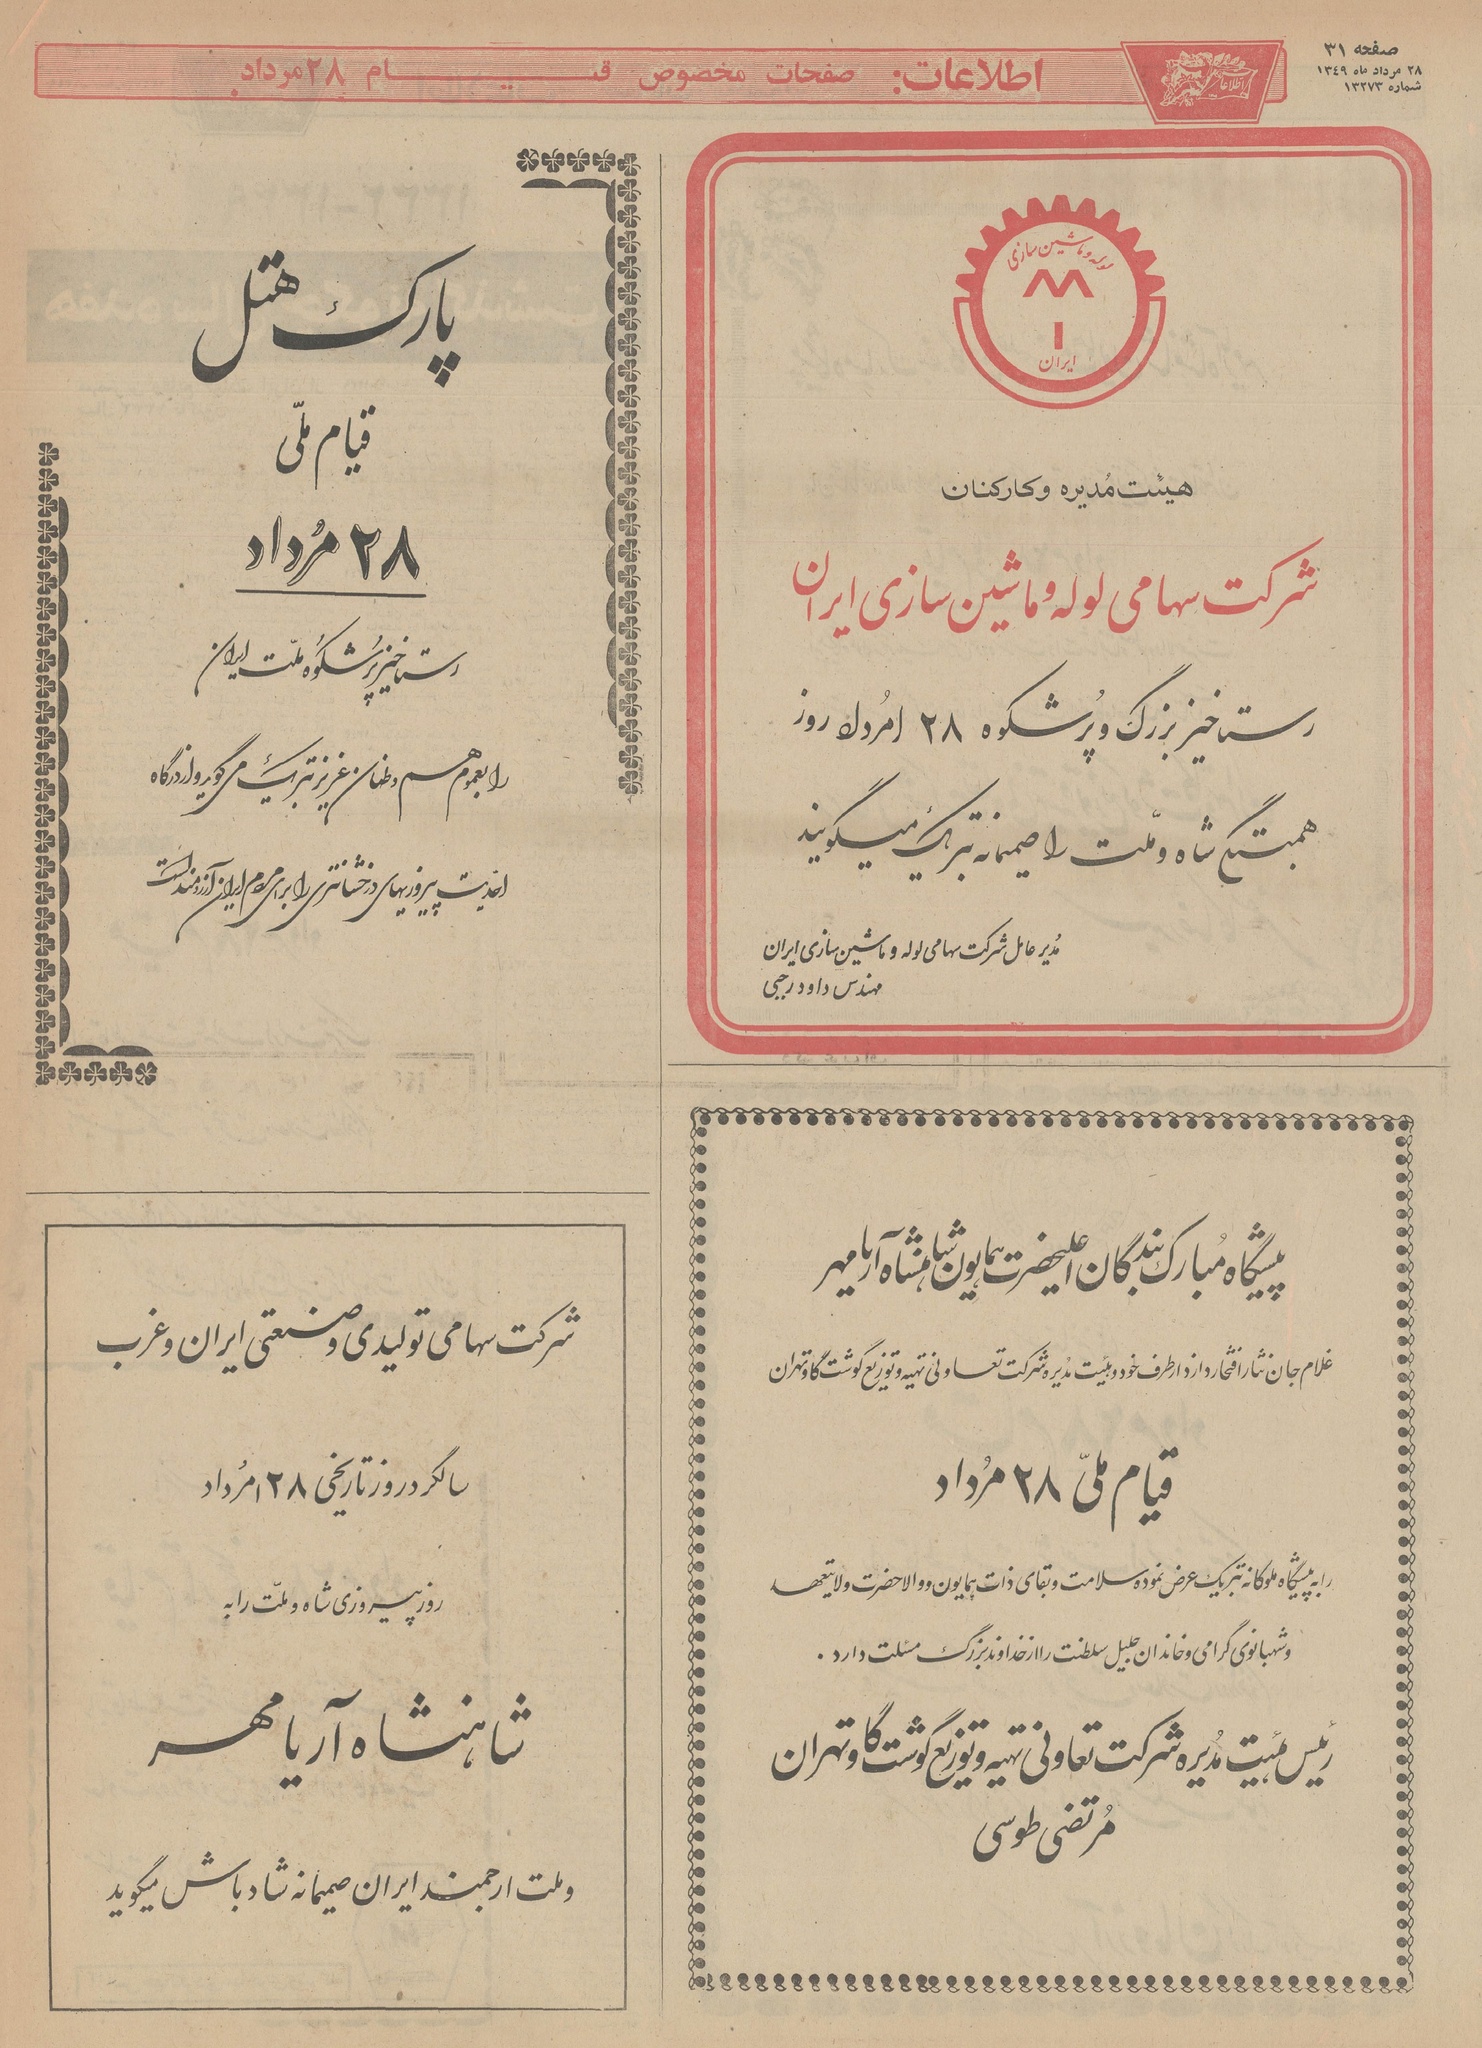 صفحه ۳۱
۲۸ مرداد ماه ۱۳۴۹
شماره ۱۳۲۷۳
اطلاعات
اطلاعات: صفحات مخصوص قیام ۲۸ مرداد
لوله و ماشین سازی
ایران
هیئت مُدیره و کارکنان
شرکت سهامی لوله و ماشین سازی ایران
رستاخیز بزرگ و پُرشکوه ۲۸ امُرداد روز
همبستگی شاه و ملّت را صمیمانه تبریک میگویند
مُدیر عامل شرکت سهامی لوله و ماشین سازی ایران
مهندس داود رجبی
پارک هتل
قیام ملّی
۲۸ مُرداد
رستاخیز پُرشکوه ملّت ایران
را بعموم هم وطنان عزیز تبریک می گوید و از درگاه
احدیت پیروزیهای درخشانتری را برای مردم ایران آرزومند است
پیشگاه مُبارک بندگان اعلیحضرت همایون شاهنشاه آریا مهر
غلام جان نثار افتخار دارد از طرف خود و هیئت مُدیره شرکت تعاونی تهیه و توزیع گوشت گاو تهران
قیام ملّی ۲۸ مُرداد
را به پیشگاه ملوکانه تبریک عرض نموده سلامت و بقای ذات همایون و والاحضرت ولایتعهد
و شهبانوی گرامی و خاندان جلیل سلطنت را از خداوند بزرگ مسئلت دارد.
رئیس هیئت مُدیره شرکت تعاونی تهیه و توزیع گوشت گاو تهران
مُرتضی طوسی
شرکت سهامی تولیدی و صنعتی ایران و غرب
سالگرد روز تاریخی ۲۸ امُرداد
روز پیروزی شاه و ملّت را به
شاهنشاه آریامهر
و ملت ارجمند ایران صمیمانه شادباش میگوید